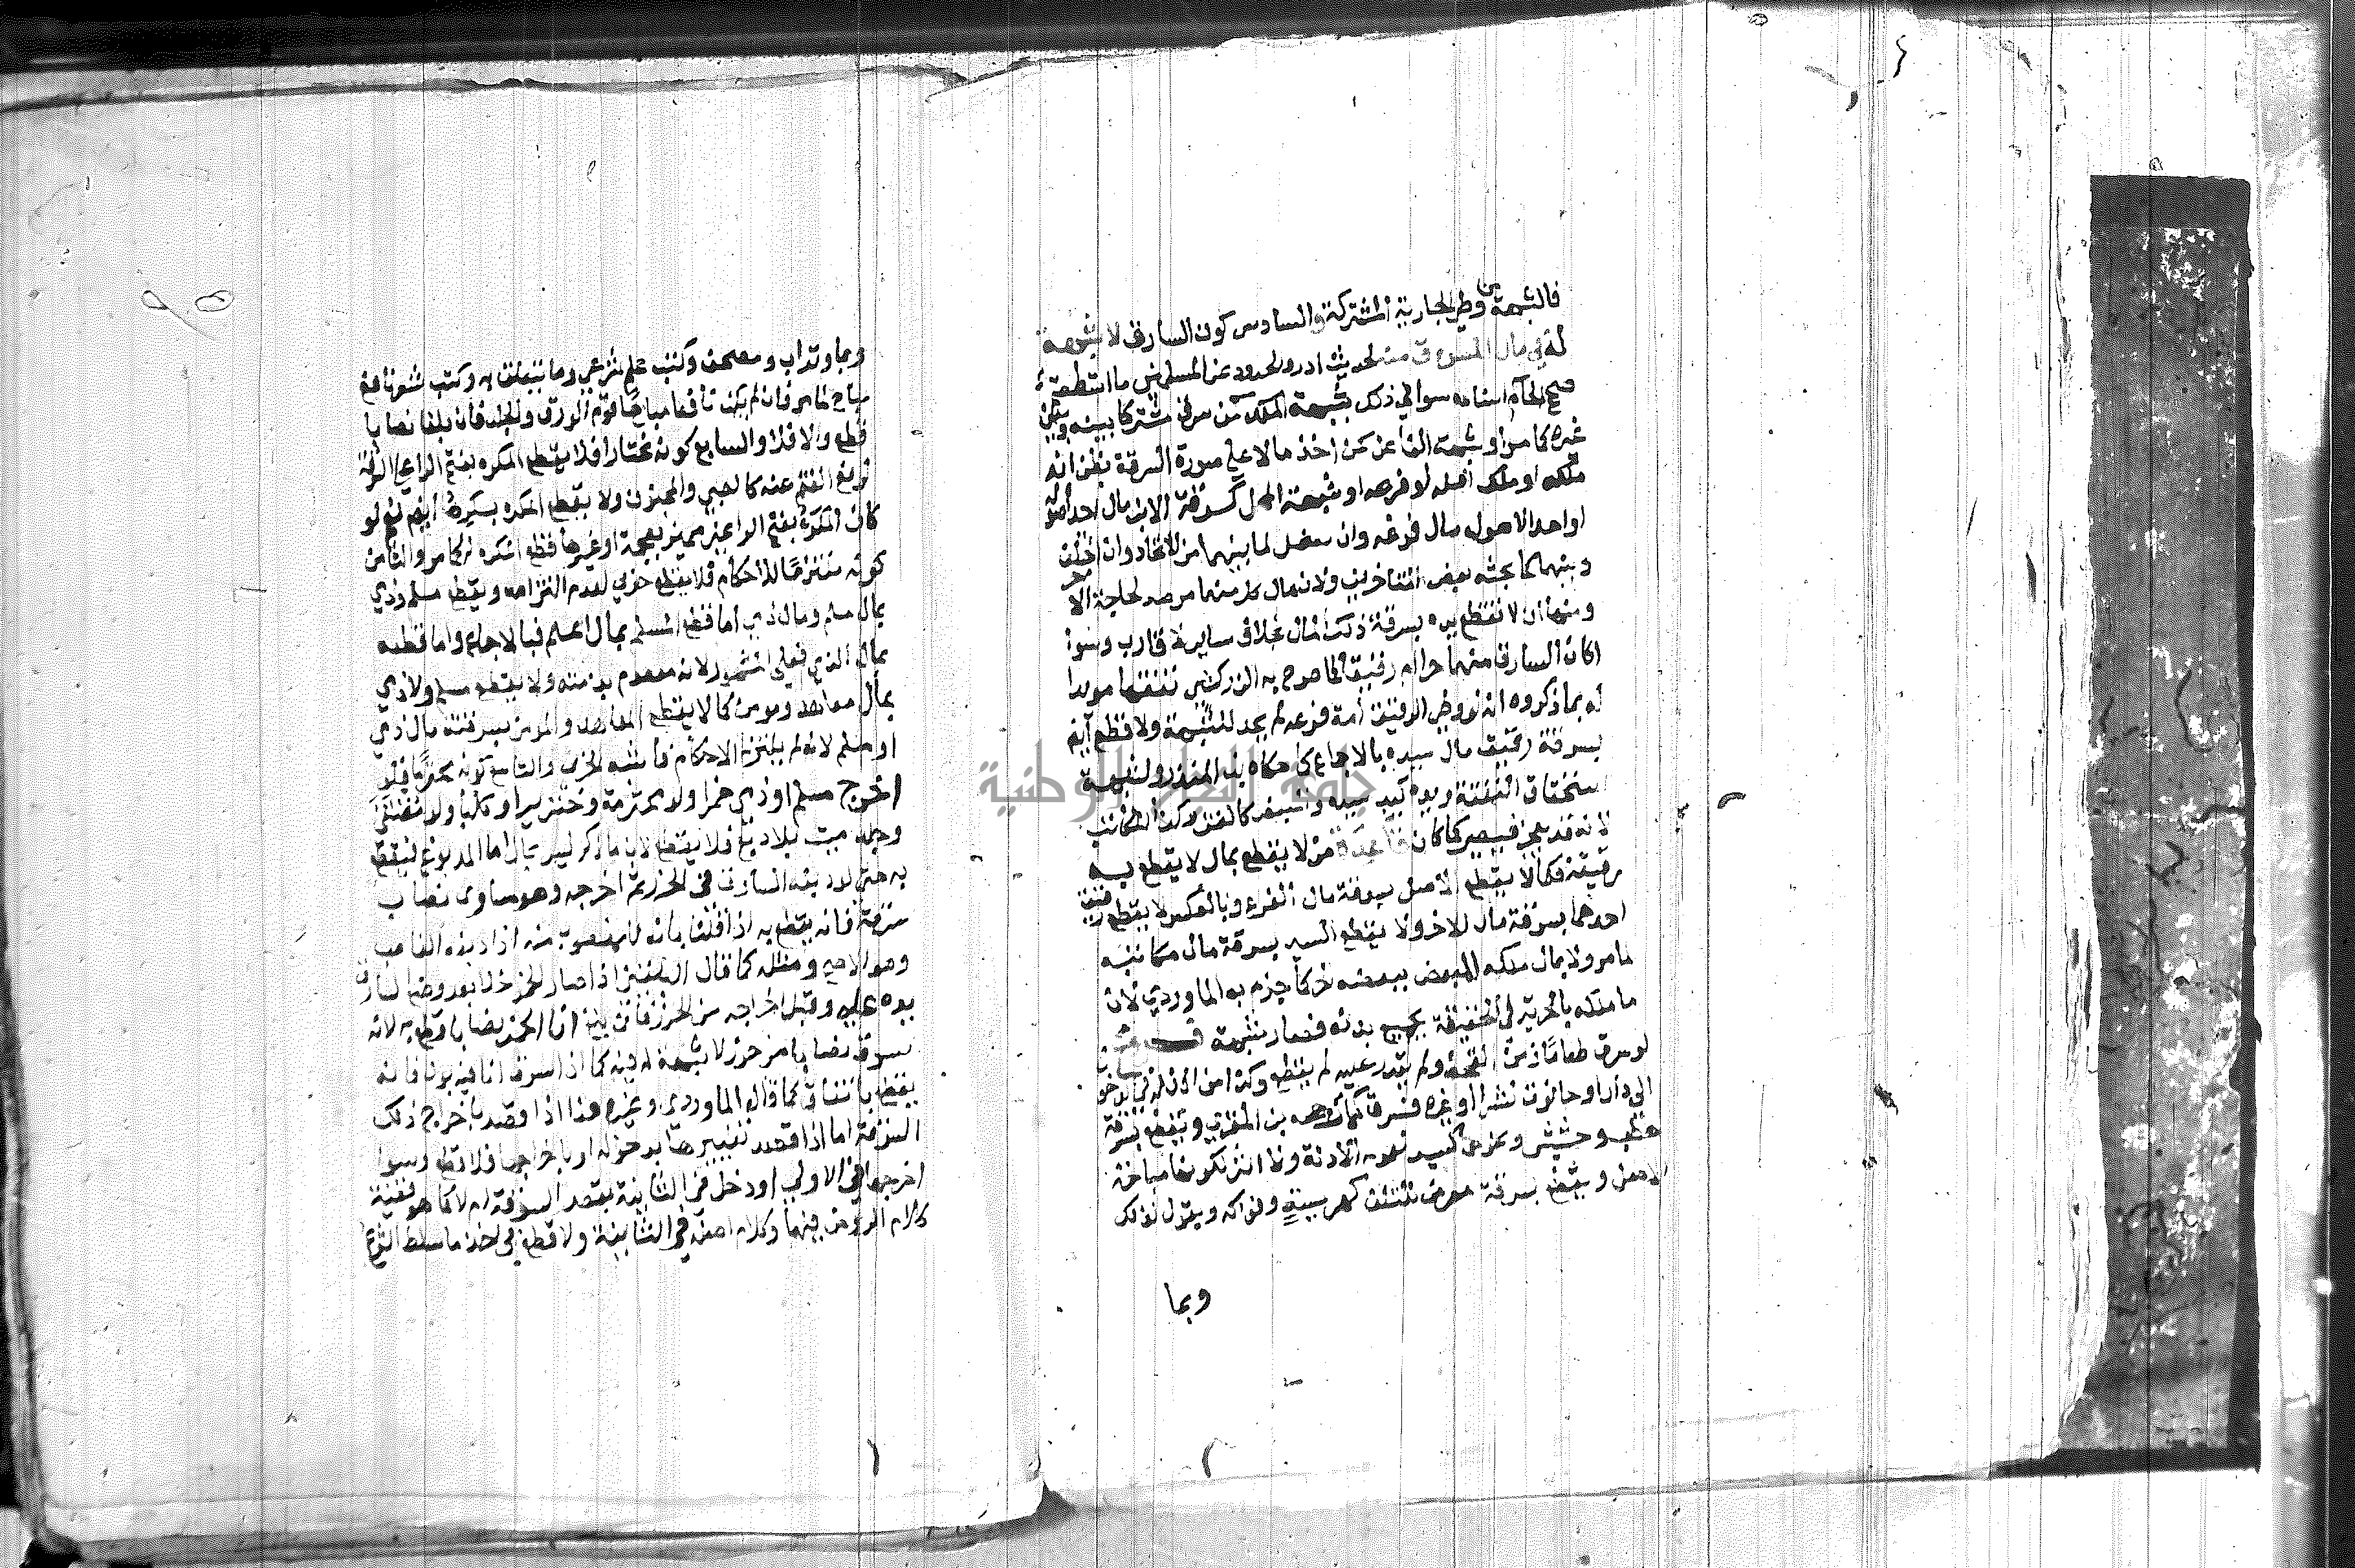 فالشبهة من وطي الجارية المشتركة والسادس كون السارق لا شبهة
له في مال المسروق منه لحديث ادروا الحدود عن المسلمين ما استطعتم
صحح الحاكم اسناده سوا في ذلك شبهة الملك كمن سرق مشتركا بينه وبين
غيره كما مر او شبهة الفاعل كمن اخذ مالا علي صورة السرقة بظن انه
ملكه او ملك اصله او فرعه او شبهة المحل كسرقة الابن مال احد اصوله
او احد الاصول مال فرعه وان سفل لما بينهما من الاتحاد وان اختلف
دينهما كما بحثه بعض المتاخرين ولان مال كل منهما مرصد لحاجة الاخر
ومنها ان لا تقطع يده بسرقة ذلك المال بخلاف ساير الاقارب وسوا
اكان السارق منهما حرا ام رقيقا كما صرح به الزركشي تفقها مويدا
له بما ذكروه انه لو وطي الرقيق امة فرعه لم يحد للشبهة ولا قطع ايضا
بسرقة رقيق مال سيده بالاجماع كما حكاه بن المنذر ولشبهة
استحقاق النفقة ويده كيد سيده والمبعض كالقن وكذا المكاتب
لانه قد يعجز فيصير كما كان قاعدة من لا يقطع بمال لا يقطع به
رقيقه فكما لا يقطع الاصل بسرقة مال الفرع وبالعكس لا يقطع رقيق
احدهما بسرقة مال الاخر ولا يقطع السيد بسرقة مال مكاتبه
لما مر ولا بمال ملكه المبعض ببعضه الحر كما جزم به الماوردي لان
ما ملكه بالحرية في الحقيقة لجميع بدنه فصار شبهة
لو سرق طعاما زمن القحط ولم يقدر عليه لم يقطع وكذا من اذن له في الدخول
الي دار او حانوت لشرا او غيره فسرق كما رجحه بن المقري ويقطع بسرقة
حطب وحشيش ونحوهما كصيد لعموم الادلة ولا اثر لكونها مباحة
الاصل ويقطع بسرقة معرض للتلف كهريسة وفواكه وبقول لذلك
وبما
وبما وتراب ومصحف وكتب علم شرعي وما يتعلق به وكتب شعر نافع
مباح لما مر فان لم يكن نافعا مباحا قوم الورق والجلد فان بلغا نصابا
قطع والا فلا والسابع كونه مختارا فلا يقطع المكره بفتح الرا علي السرقة
لرفع القلم عنه كالصبي والمجنون ولا يقطع المكره بكسرها ايضا نعم لو
كان المكره بفتح الرا غير مميز بعجمة او غيرها قطع المكره له كما مر والثامن
كونه ملتزما للاحكام فلا يقطع حربي لعدم التزامه ويقطع مسلم وذمي
بمال مسلم ومال ذمي اما قطع المسلم بمال المسلم فبالاجماع واما قطعه
بمال الذمي فعلي المشهور لانه معصوم بذمته ولا يقطع مسلم ولا ذمي
بمال معاهد ومومن كما لا يقطع المعاهد والمومن بسرقته مال ذمي
او مسلم لانه لم يلتزم الاحكام فاشبه الحربي والتاسع كونه محترما فلو
اخرج مسلم او ذمي خمرا ولو محترمة وخنزيرا وكلبا ولو مقتني
وجلد ميت بلا دبغ فلا يقطع لان ما ذكر ليس بمال اما المدبوغ فيقطع
به حتي لو دبغه السارق في الحرز ثم اخرجه وهو يساوي نصاب
سرقة فانه يقطع به اذا قلنا بانه للمغصوب منه اذا دبغه الغاصب
وهو الاصح ومثله كما قال البلقيني اذا صار الخمر خلا بعد وضع السارق
يده عليه وقبل اخراجه من الحرز فان بلغ انا الخمر نصابا قطع به لانه
سرق نصابا من حرز لا شبهة له فيه كما اذا سرق انا فيه بول فانه
يقطع باتفاق كما قاله الماوردي وغيره هذا اذا قصد باخراج ذلك
السرقة اما اذا قصد تغييرها بدخوله او باخراجها فلا قطع وسوا
اخرجها في الاولي او دخل في الثانية بقصد السرقة ام لا كما هو قضية
كلام الروض فيهما وكلام اصله في الثانية ولا قطع في اخذ ما سلط الشرع